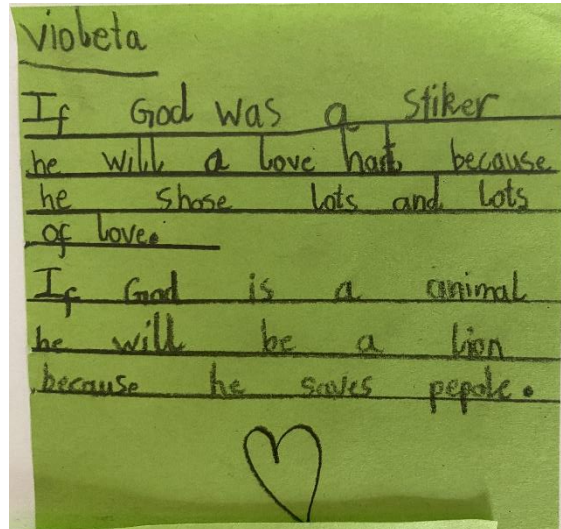 violeta
If God was a stiker
he will a love hart because
he shose lots and lots
of love.
If God is a animal
he will be a lion
because he saves pepole.